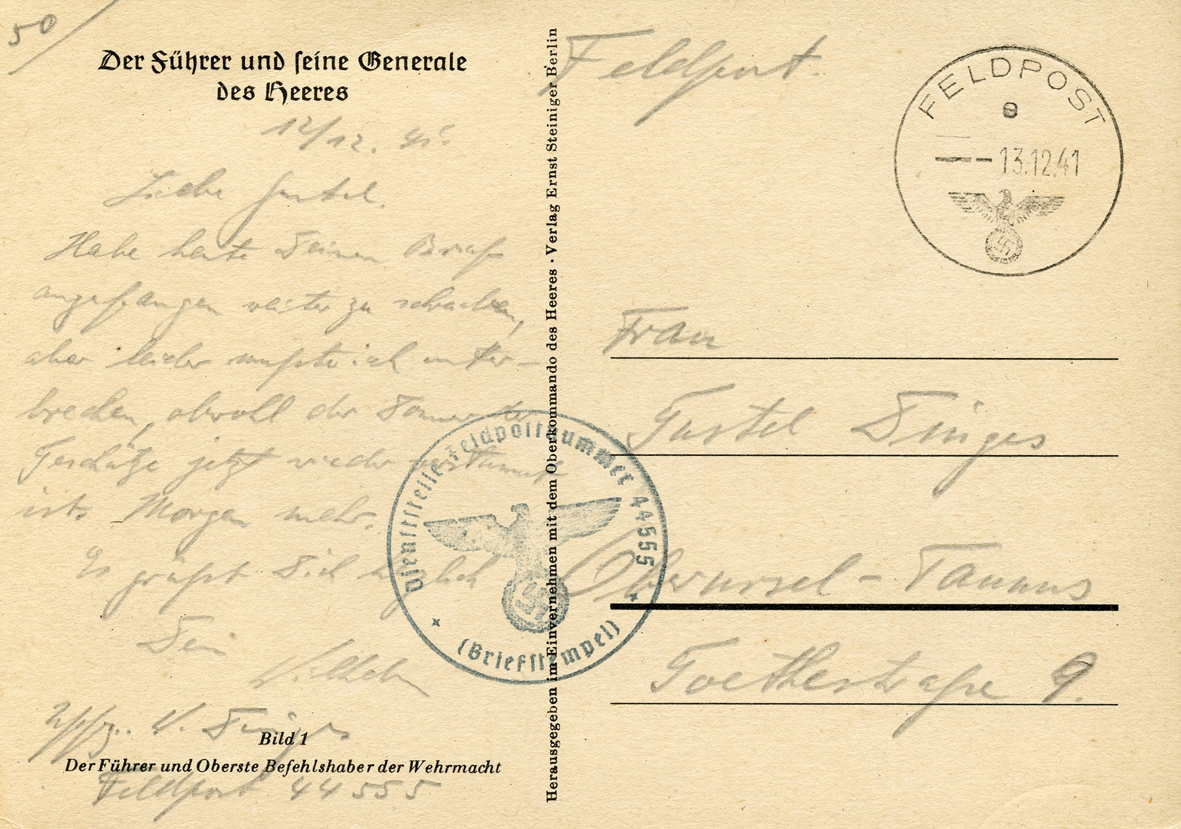 50/
Der Führer und seine Generale
des Heeres
12/12. 41.
Liebe Gustel.
Habe heute Deinen Brief
angefangen weiter zu schreiben,
aber leider mußte ich unter-
brechen, obwohl der Donner der
Geschütze jetzt wieder verstummt
ist. Morgen mehr.
Es grüßt Dich herzlich
Dein
Wilhelm
W. Dinges
Bild 1
Der Führer und Oberste Befehlshaber der Wehrmacht
Feldpost 44555
Herausgegeben im Einvernehmen mit dem Oberkommando des Heeres · Verlag Ernst Steiniger Berlin
Dienststelle Feldpostnummer 44555
(Briefstempel)
Feldpost.
FELDPOST
e
13.12.41
Frau
Gustel Dinges
Oberursel - Taunus
Goethestraße 9.